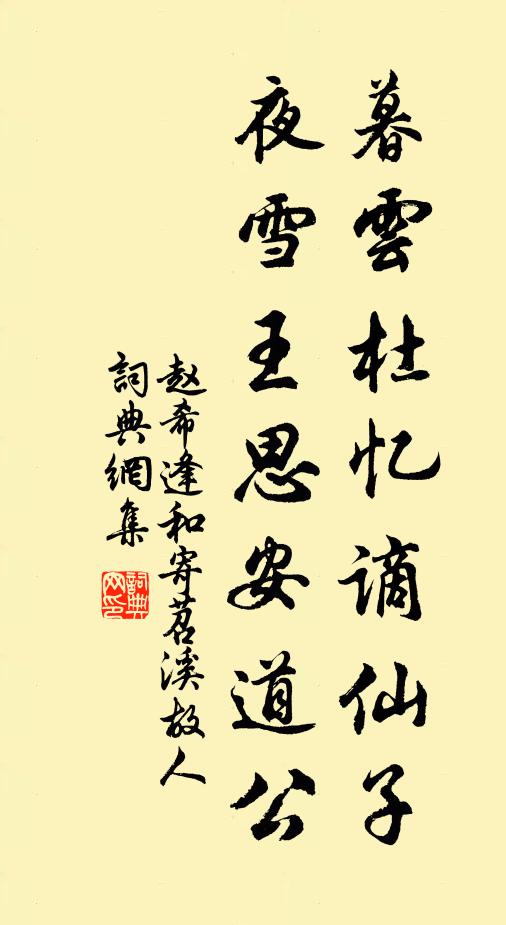 暮雲杜忆谪仙子
夜雪王思安道公
赵希逢和寄苕溪故人
詞典網集
詞典
网印